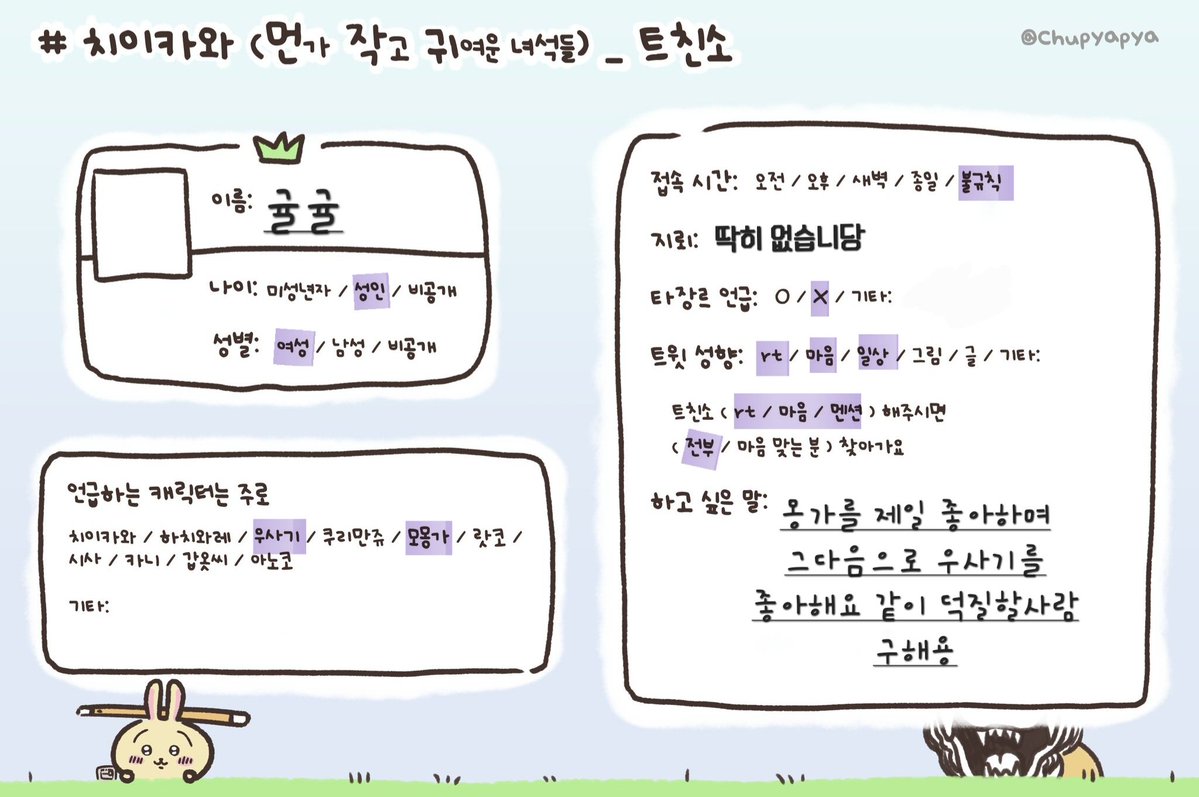 # 치이카와 (먼가 작고 귀여운 녀석들) _ 트친소
@Chupyapya
이름: 귤귤
나이: 미성년자 / 성인 / 비공개
성별: 여성 / 남성 / 비공개
언급하는 캐릭터는 주로
치이카와 / 하치와레 / 우사기 / 쿠리만쥬 / 모몽가 / 랏코 /
시사 / 카니 / 갑옷씨 / 아노코
기타:
접속 시간: 오전 / 오후 / 새벽 / 종일 / 불규칙
지뢰: 딱히 없습니당
타장르 언급: O / X / 기타:
트윗 성향: rt / 마음 / 일상 / 그림 / 글 / 기타:
트친소 ( rt / 마음 / 멘션 ) 해주시면
( 전부 / 마음 맞는 분 ) 찾아가요
하고 싶은 말: 몽가를 제일 좋아하며
그다음으로 우사기를
좋아해요 같이 덕질할사람
구해용